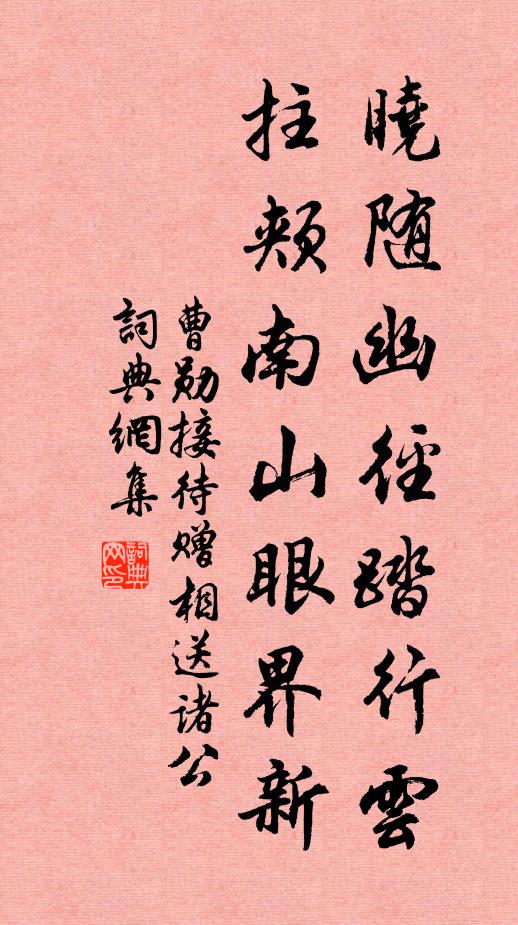 曉随幽徑踏行雲
拄頰南山眼界新
曹勛接待贈相送諸公
詞典網集
詞典网印